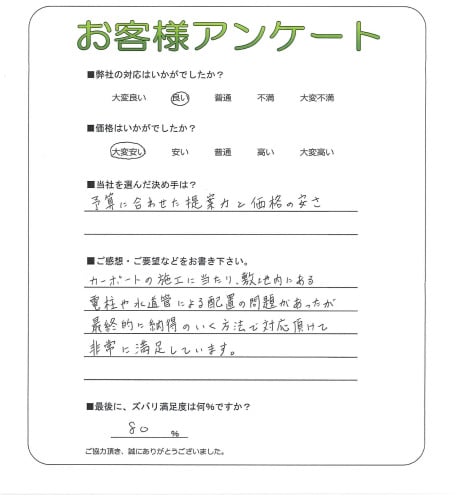 お客様アンケート
■弊社の対応はいかがでしたか？
大変良い 良い 普通 不満 大変不満
■価格はいかがでしたか？
大変安い 安い 普通 高い 大変高い
■当社を選んだ決め手は？
予算に合わせた提案力と価格の安さ
■ご感想・ご要望などをお書き下さい。
カーポートの施工に当たり、敷地内にある
電柱や水道管による配置の問題があったが
最終的に納得のいく方法で対応頂けて
非常に満足しています。
■最後に、ズバリ満足度は何%ですか？
80 %
ご協力頂き、誠にありがとうございました。